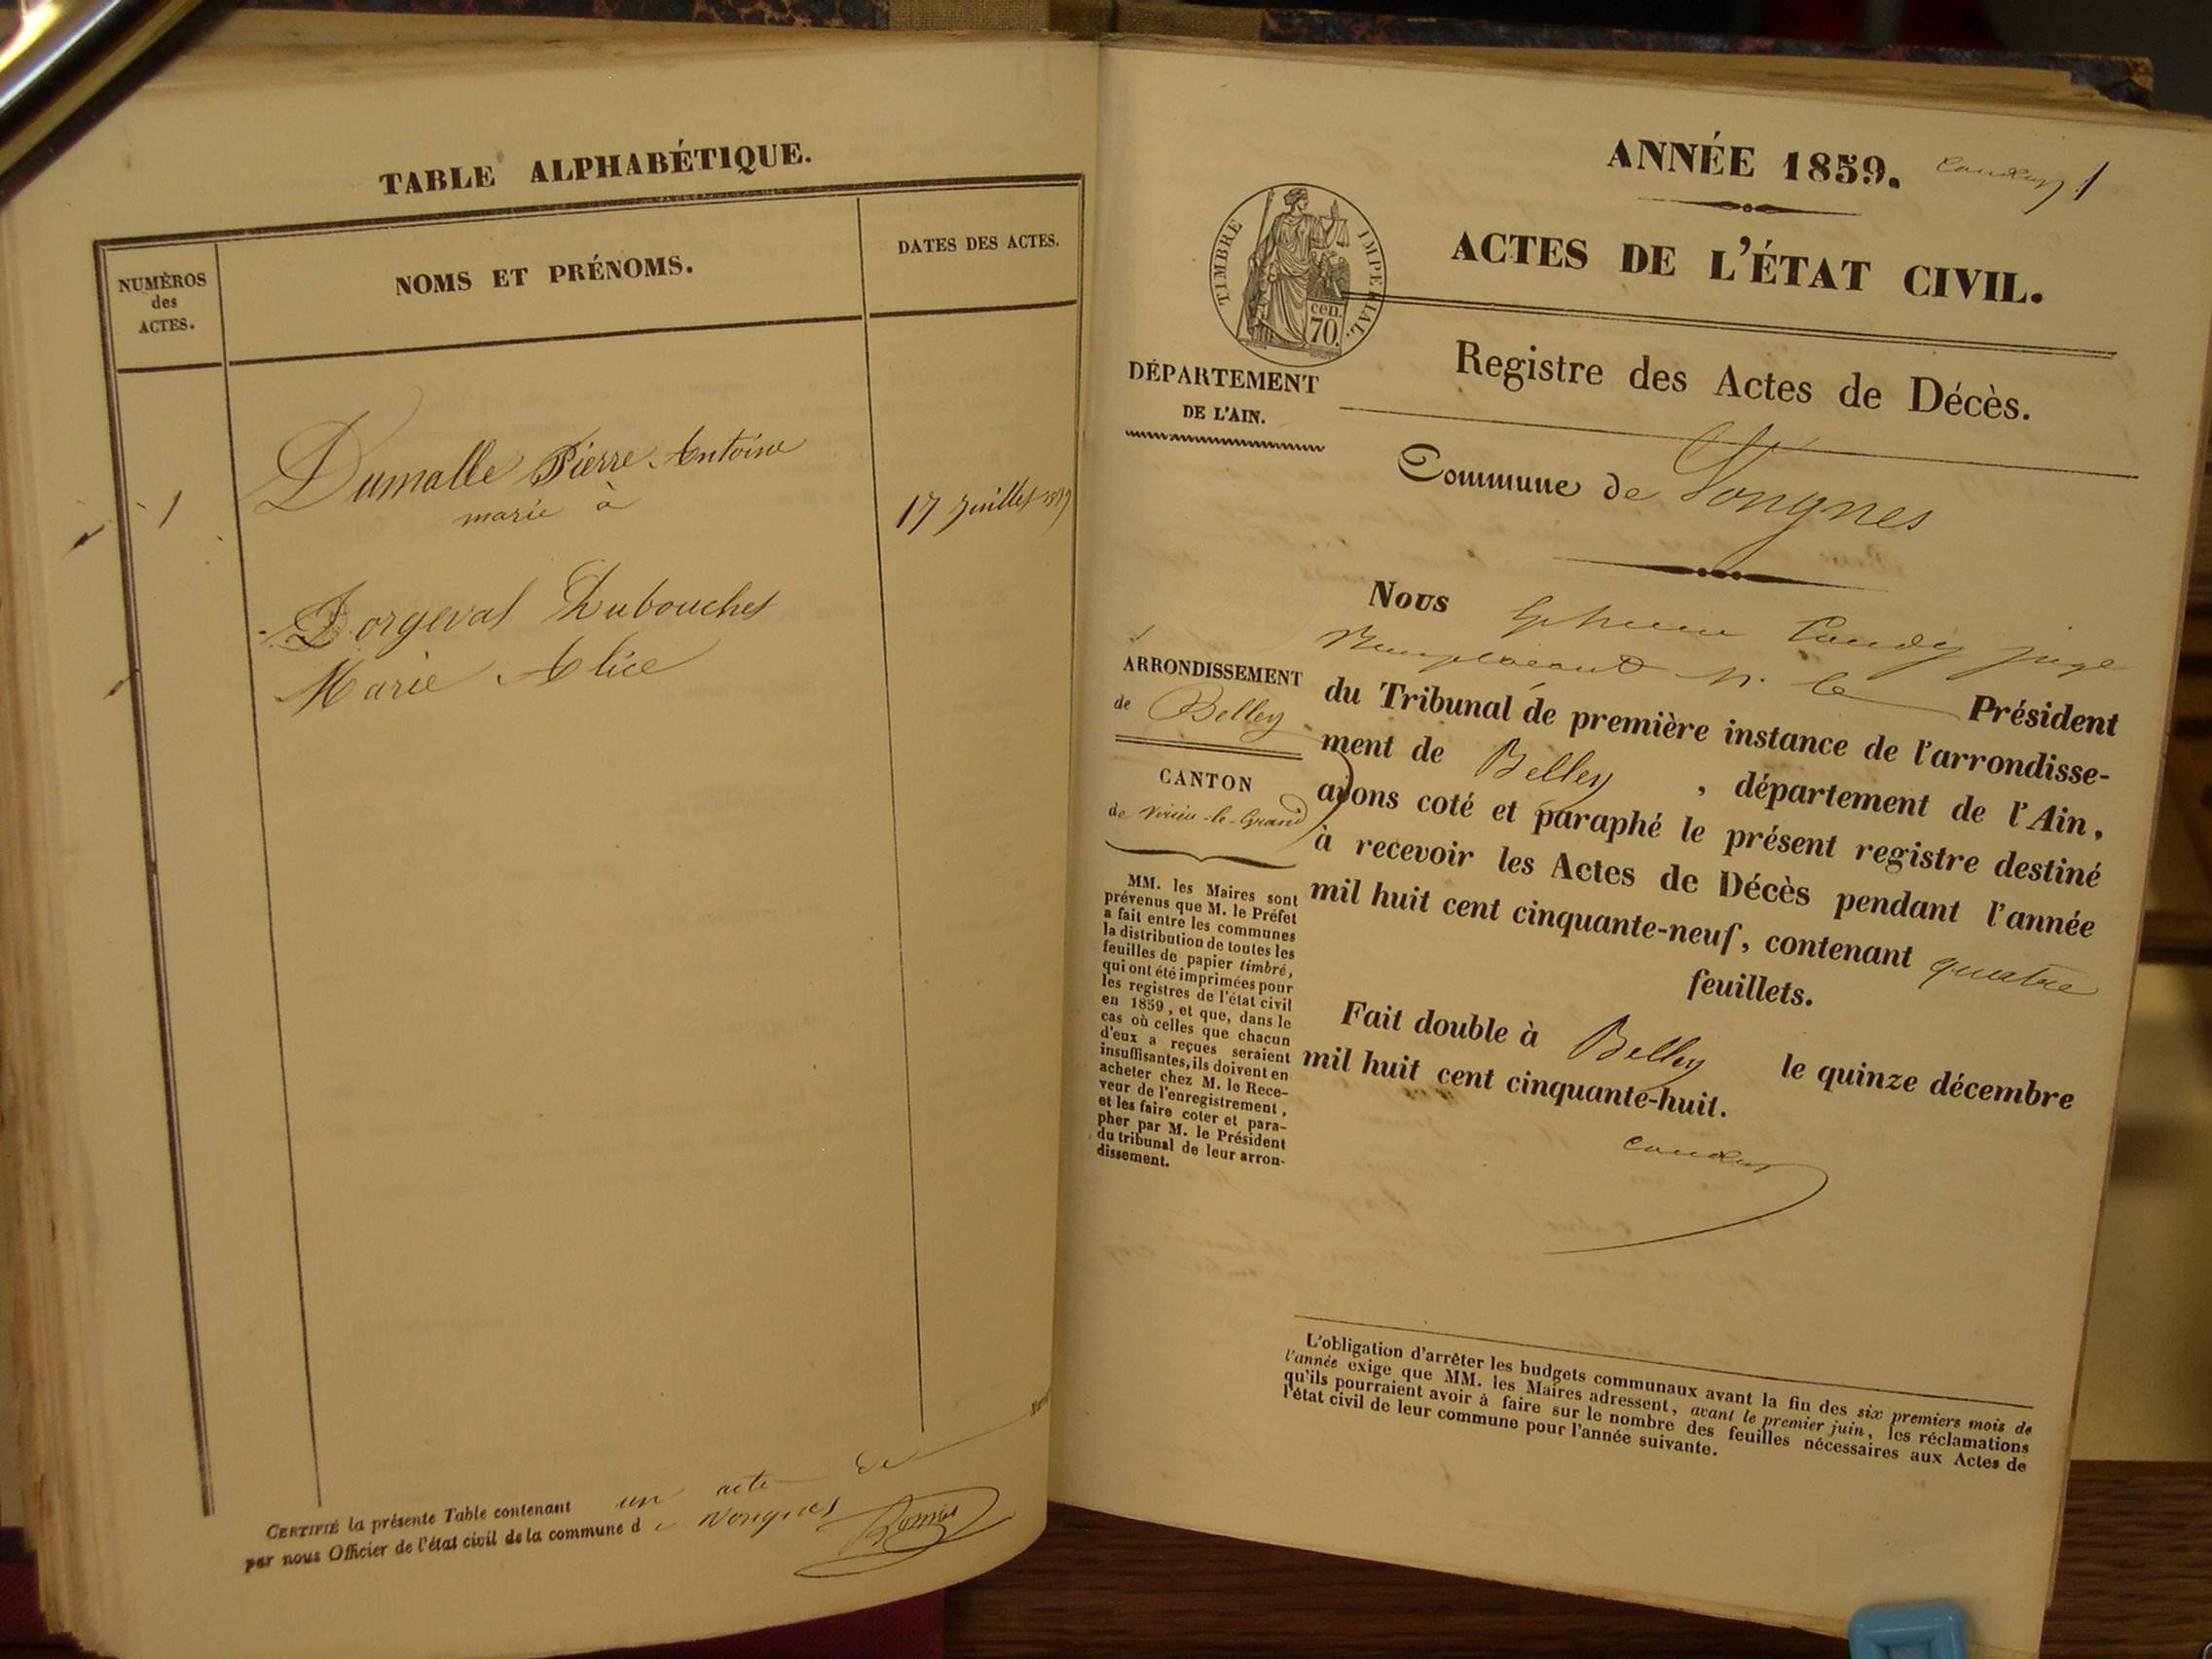 TABLE ALPHABÉTIQUE.
NUMÉROS
des
ACTES.
NOMS ET PRÉNOMS.
DATES DES ACTES.
1
Dumalle Pierre Antoine
marié à
17 Juillet 1859
Dorgeval Dubouchet
Marie Alice
CERTIFIÉ la présente Table contenant un acte de
par nous Officier de l'état civil de la commune de Vongnes
ANNÉE 1859.
1
ACTES DE L'ÉTAT CIVIL.
TIMBRE IMPÉRIAL.
cen.
70.
Registre des Actes de Décès.
DÉPARTEMENT
DE L'AIN.
Commune de Vongnes
ARRONDISSEMENT
de Belley
CANTON
de Virieu-le-Grand
MM. les Maires sont
prévenus que M. le Préfet
a fait entre les communes
la distribution de toutes les
feuilles de papier timbré,
qui ont été imprimées pour
les registres de l'état civil
en 1859, et que, dans le
cas où celles que chacun
d'eux a reçues seraient
insuffisantes, ils doivent en
acheter chez M. le Rece-
veur de l'enregistrement,
et les faire coter et para-
pher par M. le Président
du tribunal de leur arron-
dissement.
Nous juge
Remplaçant M. le Président
du Tribunal de première instance de l'arrondisse-
ment de Belley, département de l'Ain,
avons coté et paraphé le présent registre destiné
à recevoir les Actes de Décès pendant l'année
mil huit cent cinquante-neuf, contenant quatre
feuillets.
Fait double à Belley le quinze décembre
mil huit cent cinquante-huit.
L'obligation d'arrêter les budgets communaux avant la fin des six premiers mois de
l'année exige que MM. les Maires adressent, avant le premier juin, les réclamations
qu'ils pourraient avoir à faire sur le nombre des feuilles nécessaires aux Actes de
l'état civil de leur commune pour l'année suivante.